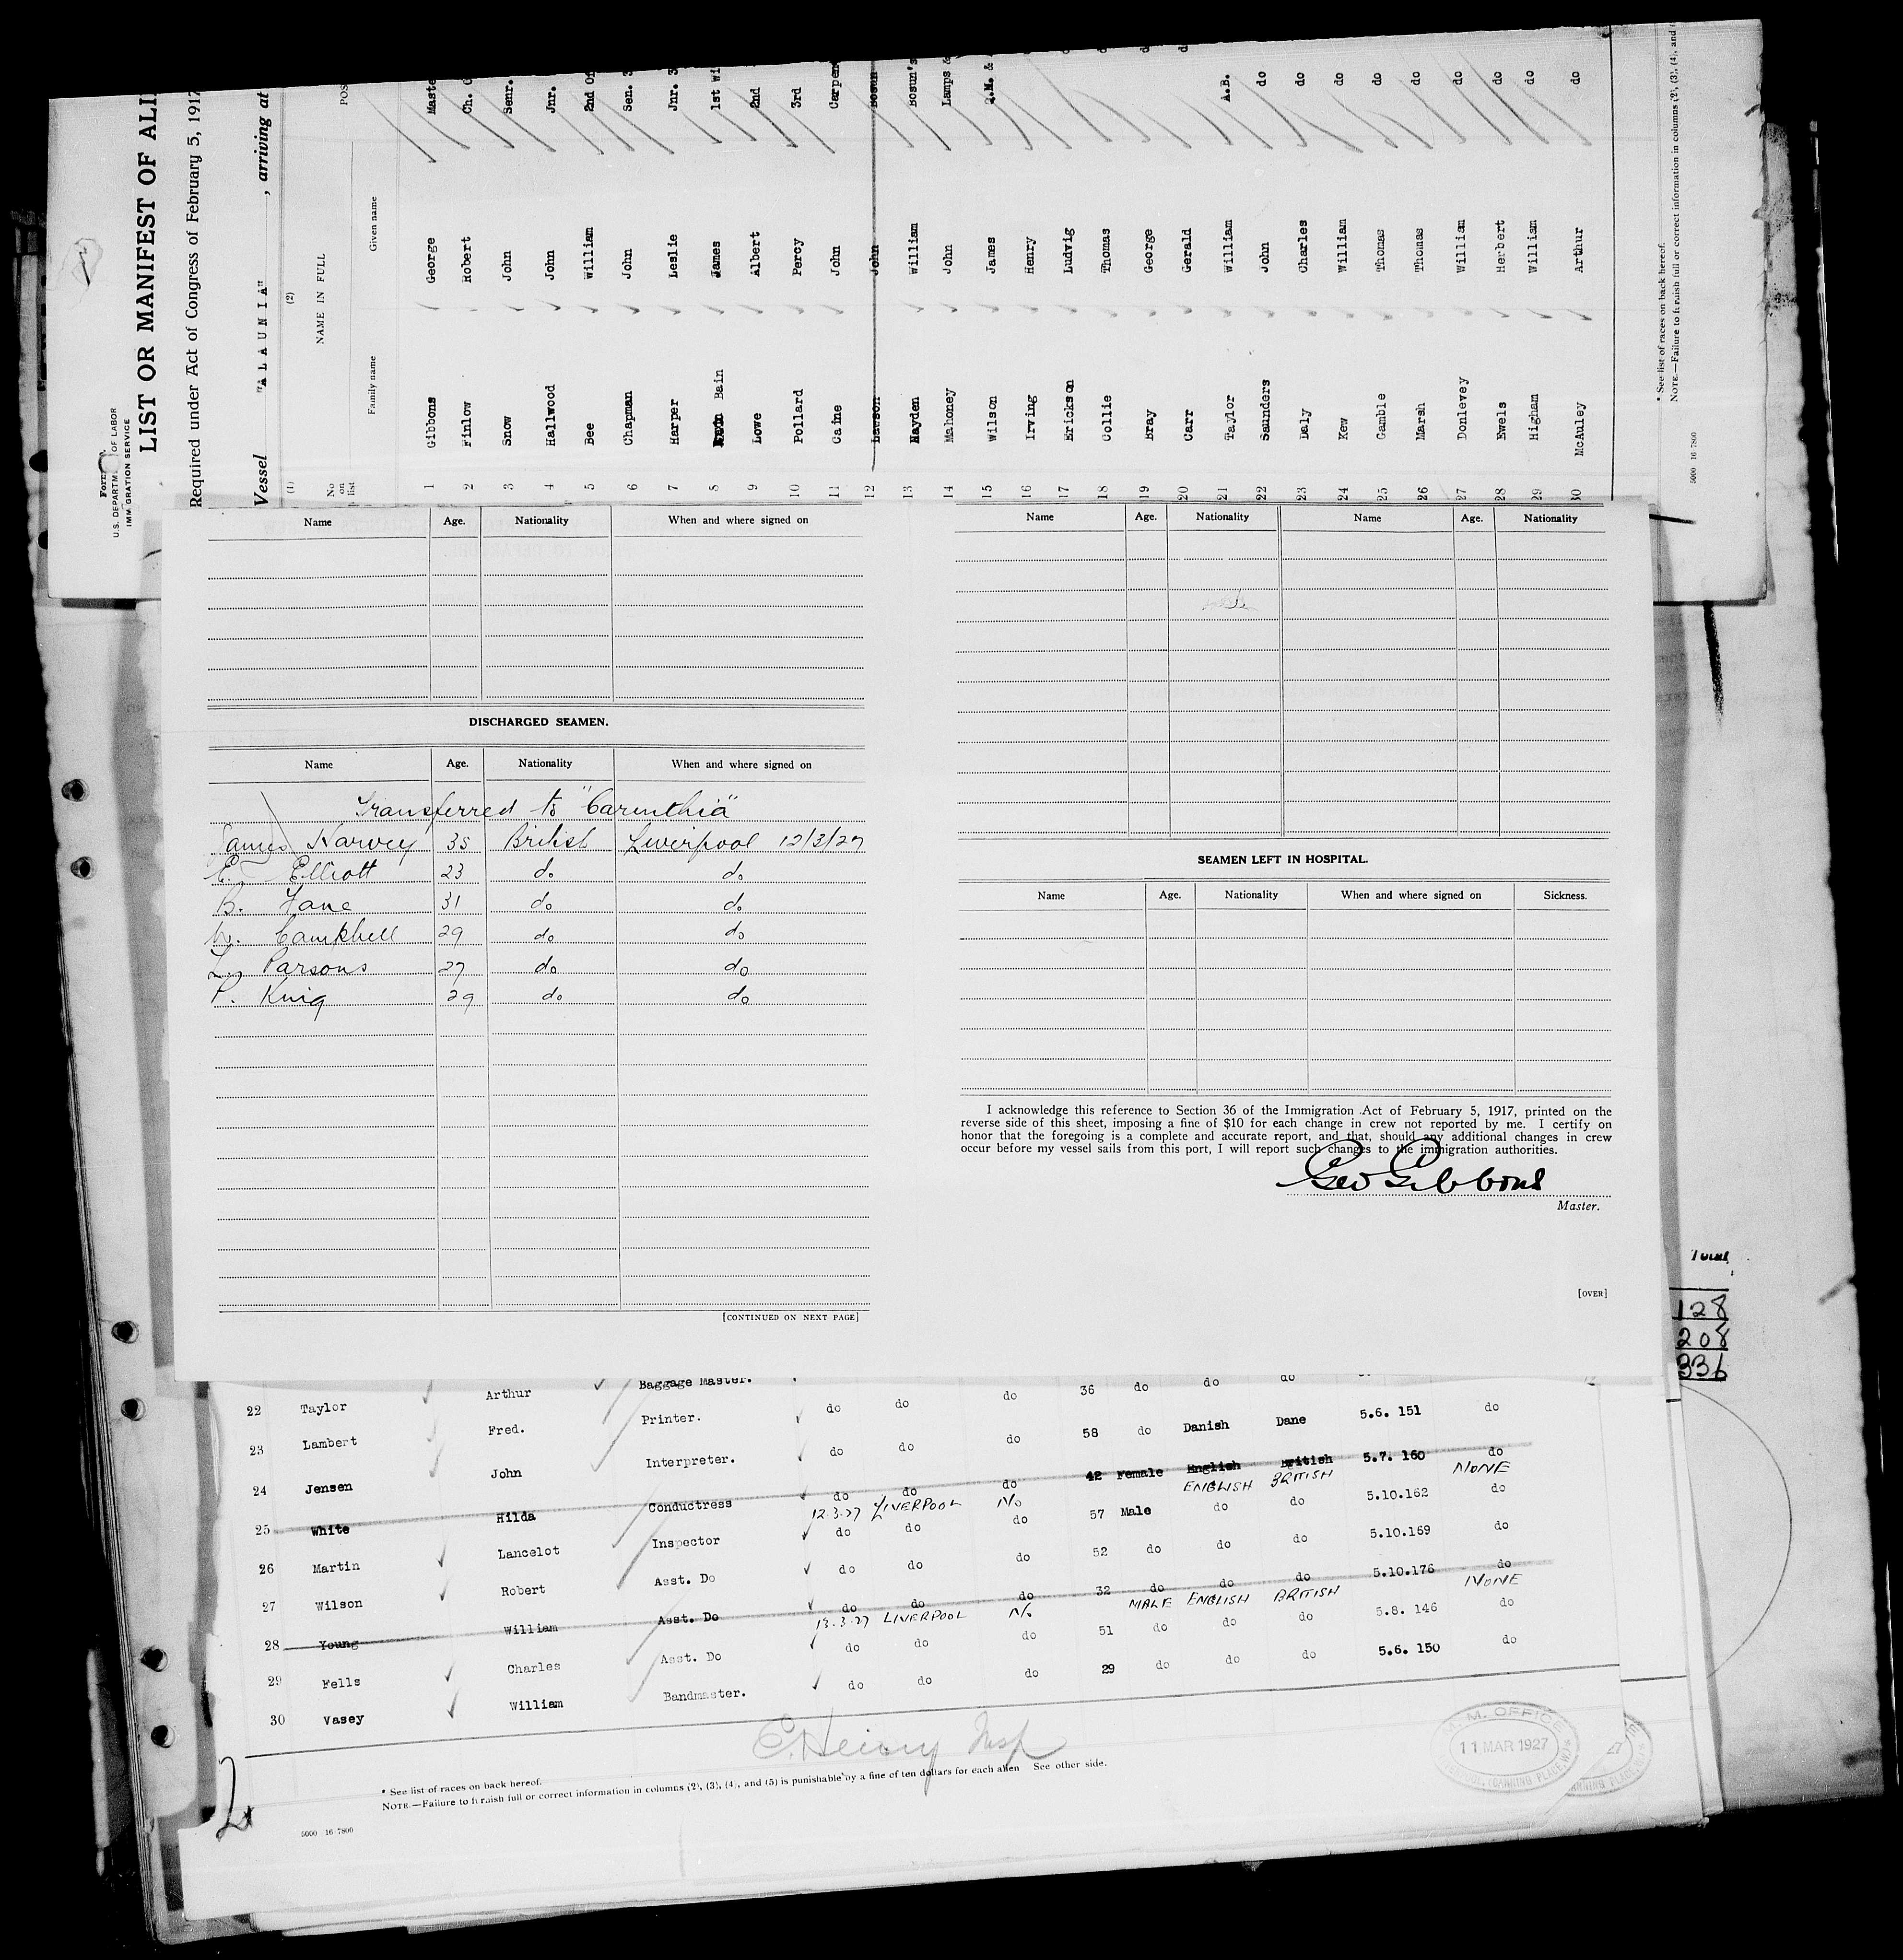 Form
U.S. DEPARTM OF LABOR
IMMIGRATION SERVICE
LIST OR MANIFEST OF ALI
Required under Act of Congress of February 5, 1917
Vessel "ALAUNIA" , arriving at
(1) (2)
No on list NAME IN FULL POS
Family name Given name
1 Gibbons George Maste
2 Finlow Robert Ch. O
3 Snow John Senr.
4 Hallwood John Jnr.
5 Bee William 2nd Of
6 Chapman John Sen. 3
7 Harper Leslie Jnr. 3
8 Bain James 1st Wi
9 Lowe Albert 2nd
10 Pollard Percy 3rd
11 Caine John Carpen
12 Lawson John Bosun
13 Hayden William Bosun's
14 Mahoney John Lamps &
15 Wilson James Q.M. &
16 Irving Henry
17 Erickson Ludvig
18 Collie Thomas
19 Bray George
20 Carr Gerald
21 Taylor William A.B.
22 Saunders John do
23 Daly Charles do
24 Kew William do
25 Gamble Thomas do
26 Marsh Thomas do
27 Donlevey William do
28 Ewels Herbert do
29 Higham William do
30 McAuley Arthur do
* See list of races on back hereof.
NOTE.—Failure to furnish full or correct information in columns (2), (3), (4), and (
5000 16-7800
Name Age. Nationality When and where signed on
DISCHARGED SEAMEN.
Name Age. Nationality When and where signed on
Transferred to "Carinthia"
James Harvey 35 British Liverpool 12/3/27
E. Elliott 23 do do
B. Fane 31 do do
W. Campbell 29 do do
L. Parsons 27 do do
P. King 29 do do
[CONTINUED ON NEXT PAGE]
Name Age. Nationality Name Age. Nationality
SEAMEN LEFT IN HOSPITAL.
Name Age. Nationality When and where signed on Sickness.
I acknowledge this reference to Section 36 of the Immigration Act of February 5, 1917, printed on the
reverse side of this sheet, imposing a fine of $10 for each change in crew not reported by me. I certify on
honor that the foregoing is a complete and accurate report, and that, should any additional changes in crew
occur before my vessel sails from this port, I will report such changes to the immigration authorities.
Geo Gibbons
Master.
[OVER]
Total
128
208
336
22 Taylor Arthur Baggage Master. do do do 36 do do do
23 Lambert Fred. Printer. do do do 58 do Danish Dane 5.6. 151 do
24 Jensen John Interpreter. do do do 42 Female English British 5.7. 160 do
25 White Hilda Conductress 12.3.27 LIVERPOOL No ENGLISH BRITISH NONE
26 Martin Lancelot Inspector do do do 57 Male do do 5.10.162 do
27 Wilson Robert Asst. Do do do do 52 do do do 5.10.169 do
28 Young William Asst. Do do do do 32 do do do 5.10.176 do
13.3.27 LIVERPOOL No MALE ENGLISH BRITISH NONE
29 Fells Charles Asst. Do do do do 51 do do do 5.8. 146 do
30 Vasey William Bandmaster. do do do 29 do do do 5.6. 150 do
M. M. OFFICE
11 MAR 1927
* See list of races on back hereof.
NOTE.—Failure to furnish full or correct information in columns (2), (3), (4), and (5) is punishable by a fine of ten dollars for each alien See other side.
5000 16-7800